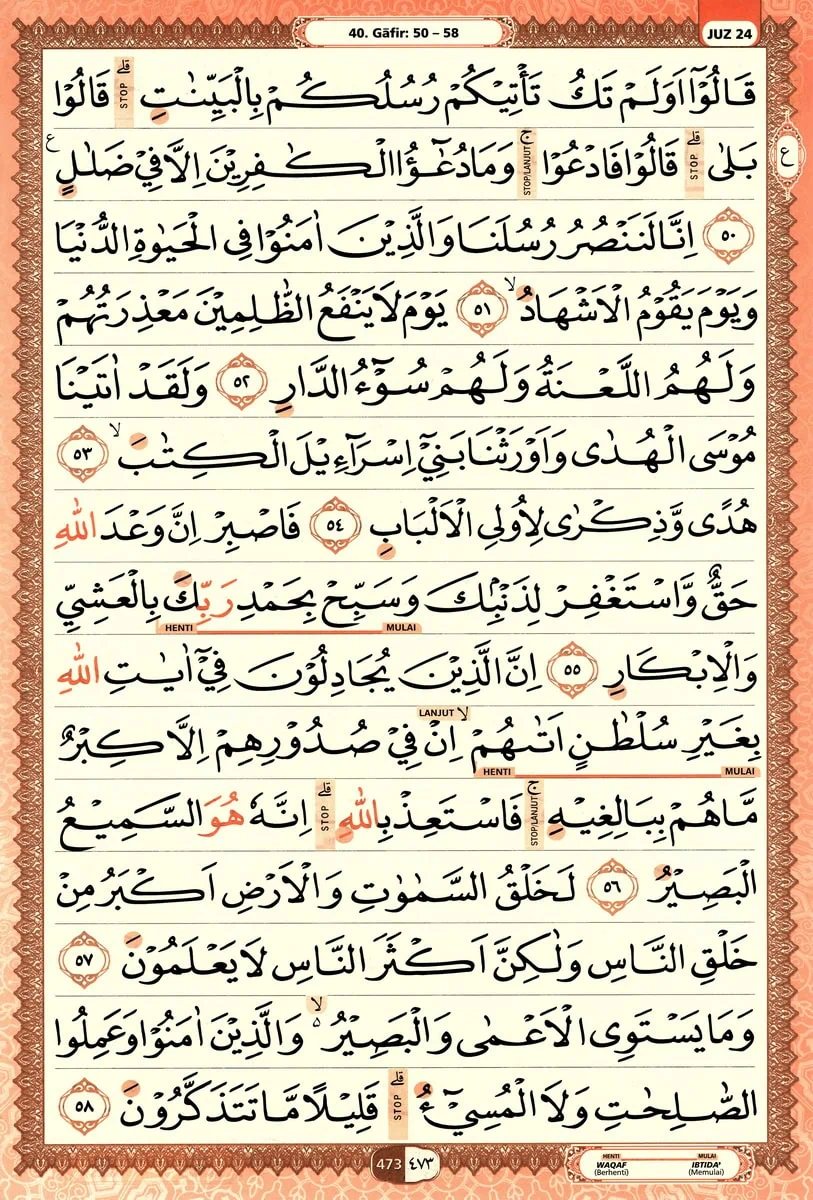 40. Gāfir: 50 – 58
JUZ 24
قَالُوْٓا اَوَلَمْ تَكُ تَأْتِيْكُمْ رُسُلُكُمْ بِالْبَيِّنٰتِۗ STOP قَالُوْا
بَلٰىۗ STOP قَالُوْا فَادْعُوْاۚ STOP/LANJUT وَمَا دُعٰۤؤُا الْكٰفِرِيْنَ اِلَّا فِيْ ضَلٰلٍ ࣖ ع
٥٠ اِنَّا لَنَنْصُرُ رُسُلَنَا وَالَّذِيْنَ اٰمَنُوْا فِى الْحَيٰوةِ الدُّنْيَا
وَيَوْمَ يَقُوْمُ الْاَشْهَادُۙ ٥١ يَوْمَ لَا يَنْفَعُ الظّٰلِمِيْنَ مَعْذِرَتُهُمْ
وَلَهُمُ اللَّعْنَةُ وَلَهُمْ سُوْۤءُ الدَّارِ ٥٢ وَلَقَدْ اٰتَيْنَا
مُوْسَى الْهُدٰى وَاَوْرَثْنَا بَنِيْٓ اِسْرَاۤءِيْلَ الْكِتٰبَۙ ٥٣
هُدًى وَّذِكْرٰى لِاُولِى الْاَلْبَابِ ٥٤ فَاصْبِرْ اِنَّ وَعْدَ اللّٰهِ
حَقٌّ وَّاسْتَغْفِرْ لِذَنْۢبِكَ وَسَبِّحْ بِحَمْدِ رَبِّكَ بِالْعَشِيِّ
HENTI MULAI
وَالْاِبْكَارِ ٥٥ اِنَّ الَّذِيْنَ يُجَادِلُوْنَ فِيْٓ اٰيٰتِ اللّٰهِ
بِغَيْرِ سُلْطٰنٍ اَتٰىهُمْۙ LANJUT اِنْ فِيْ صُدُوْرِهِمْ اِلَّا كِبْرٌ
HENTI MULAI
مَّا هُمْ بِبَالِغِيْهِۚ STOP/LANJUT فَاسْتَعِذْ بِاللّٰهِۗ STOP اِنَّهٗ هُوَ السَّمِيْعُ
الْبَصِيْرُ ٥٦ لَخَلْقُ السَّمٰوٰتِ وَالْاَرْضِ اَكْبَرُ مِنْ
خَلْقِ النَّاسِ وَلٰكِنَّ اَكْثَرَ النَّاسِ لَا يَعْلَمُوْنَ ٥٧
وَمَا يَسْتَوِى الْاَعْمٰى وَالْبَصِيْرُ ەۙ وَالَّذِيْنَ اٰمَنُوْا وَعَمِلُوا
الصّٰلِحٰتِ وَلَا الْمُسِيْۤءُۗ STOP قَلِيْلًا مَّا تَتَذَكَّرُوْنَ ٥٨
473 ٤٧٣
HENTI MULAI
WAQAF IBTIDA'
(Berhenti) (Memulai)